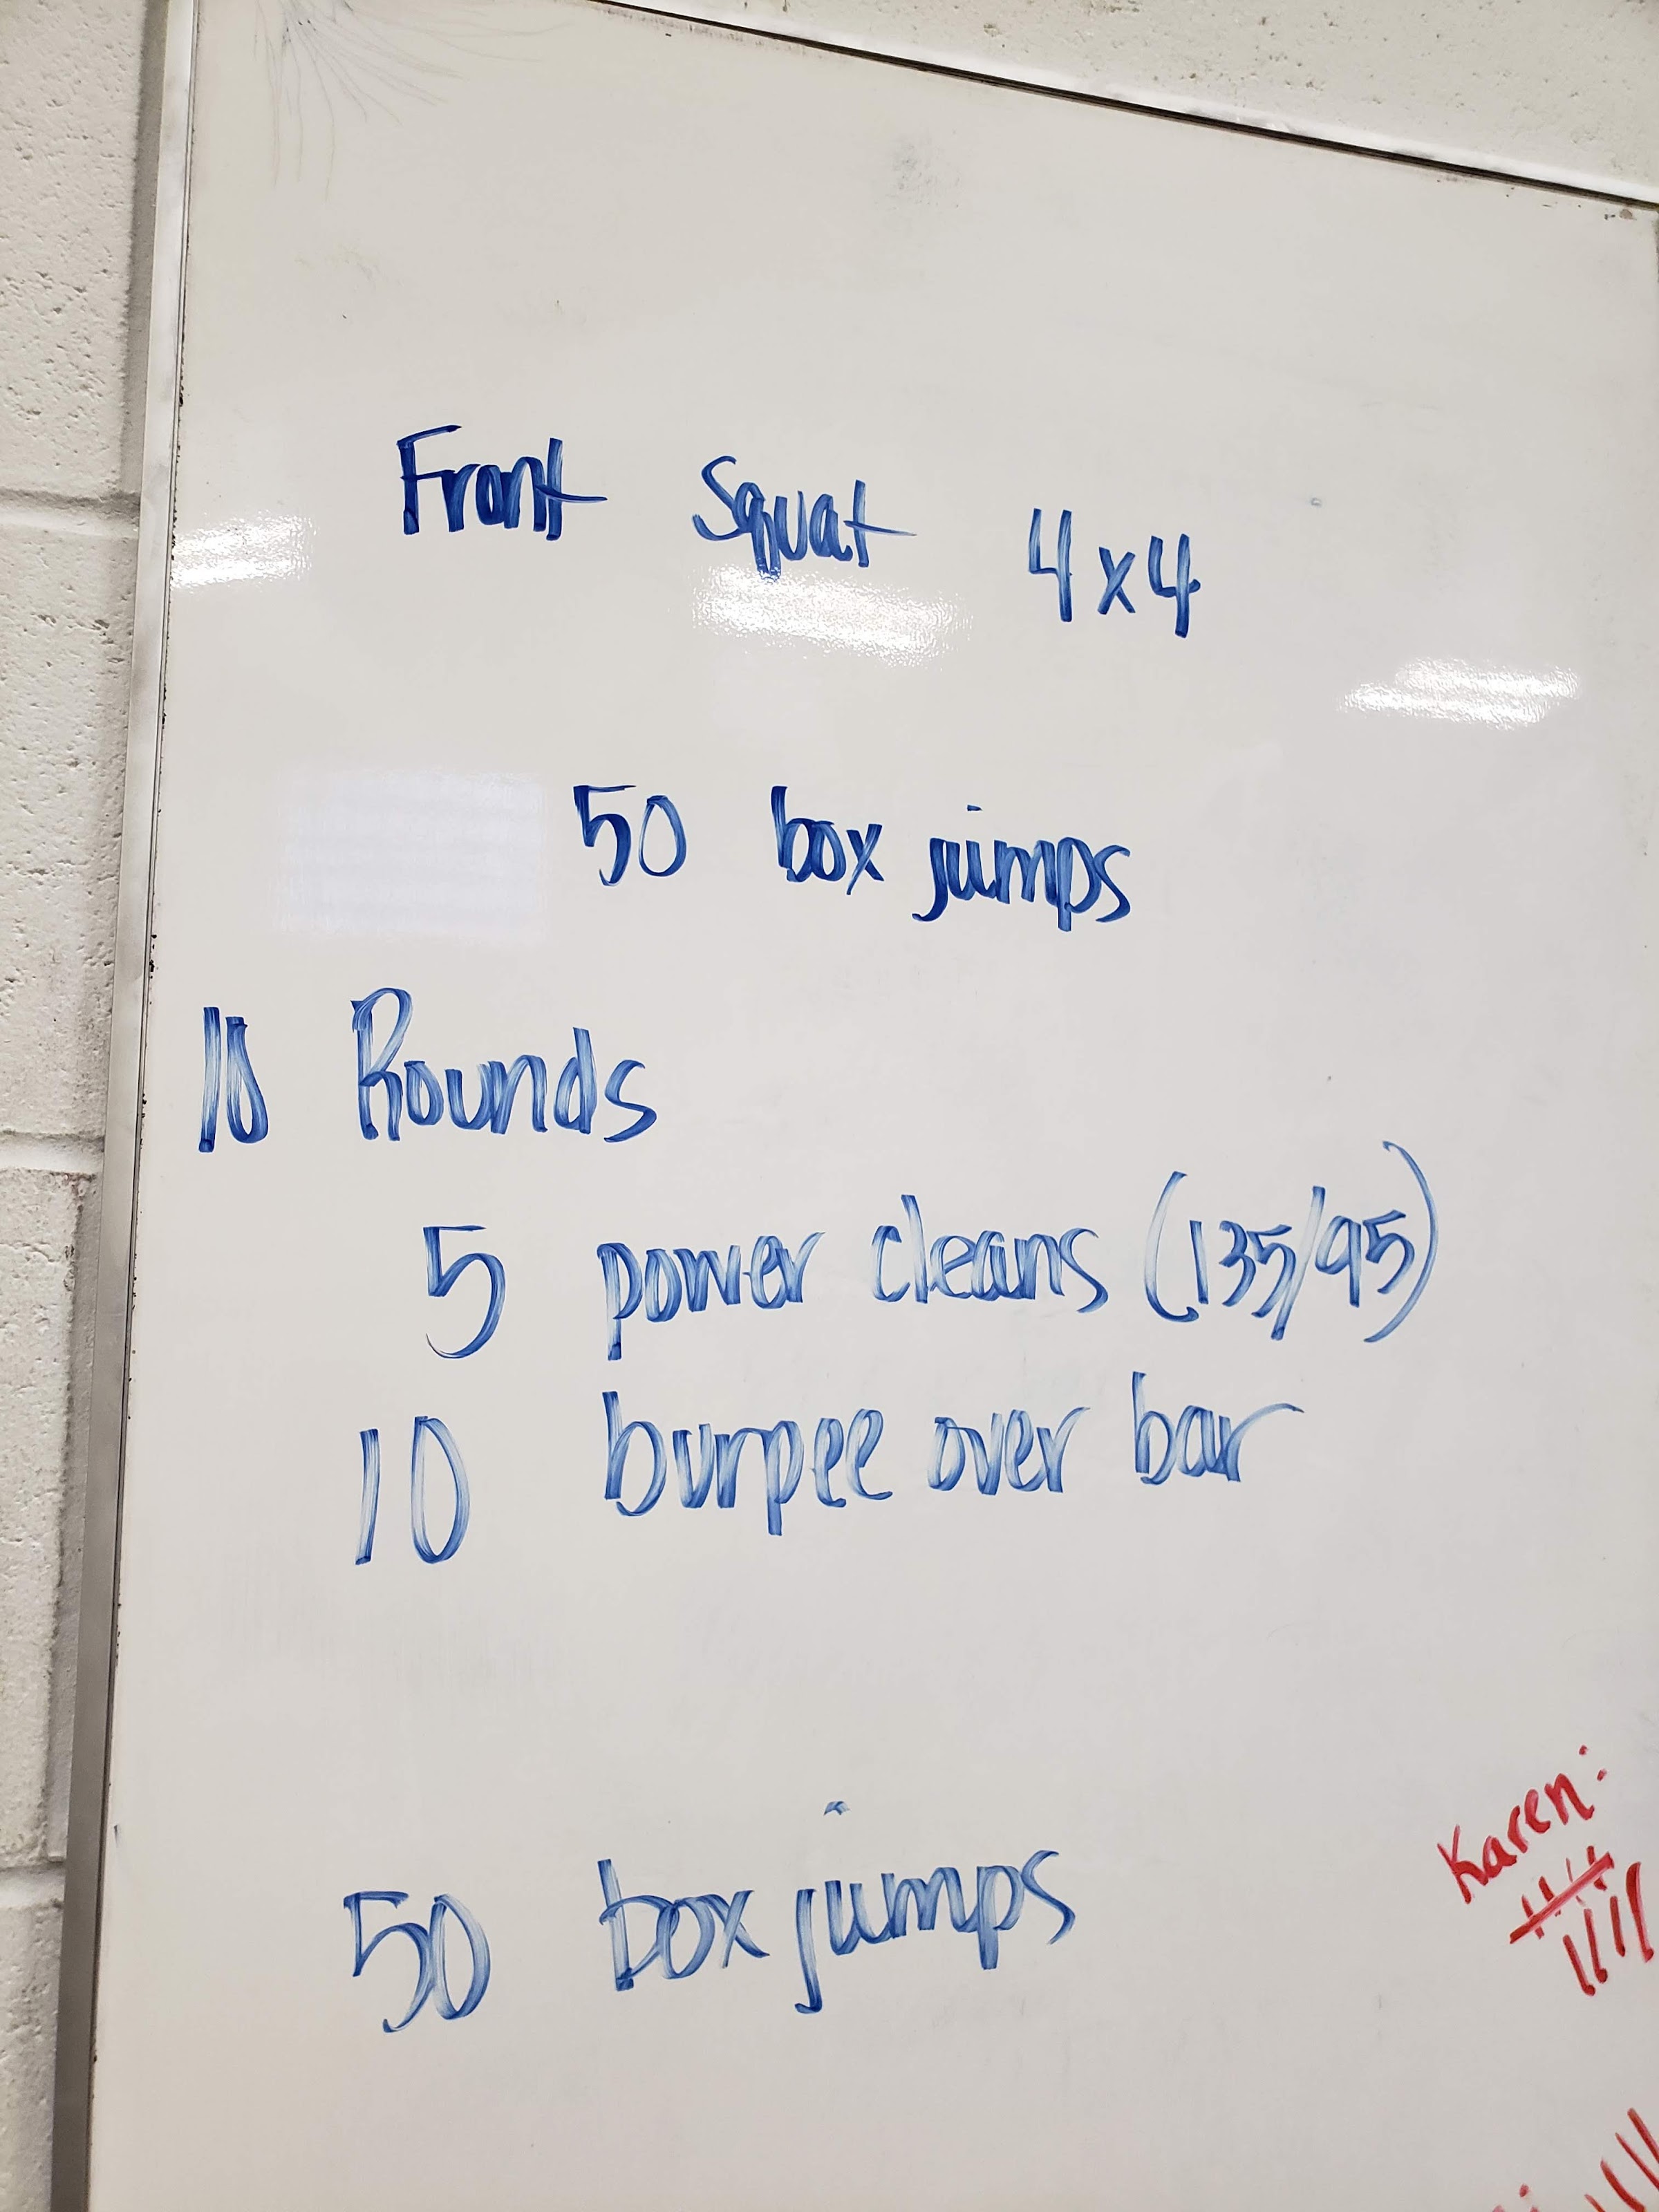 Front Squat 4x4
50 box jumps
10 Rounds
5 power cleans (135/95)
10 burpee over bar
50 box jumps
Karen: